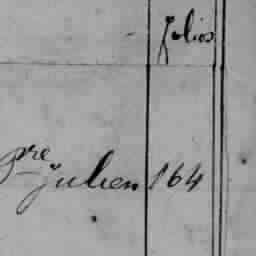 folios
pre Julien 164